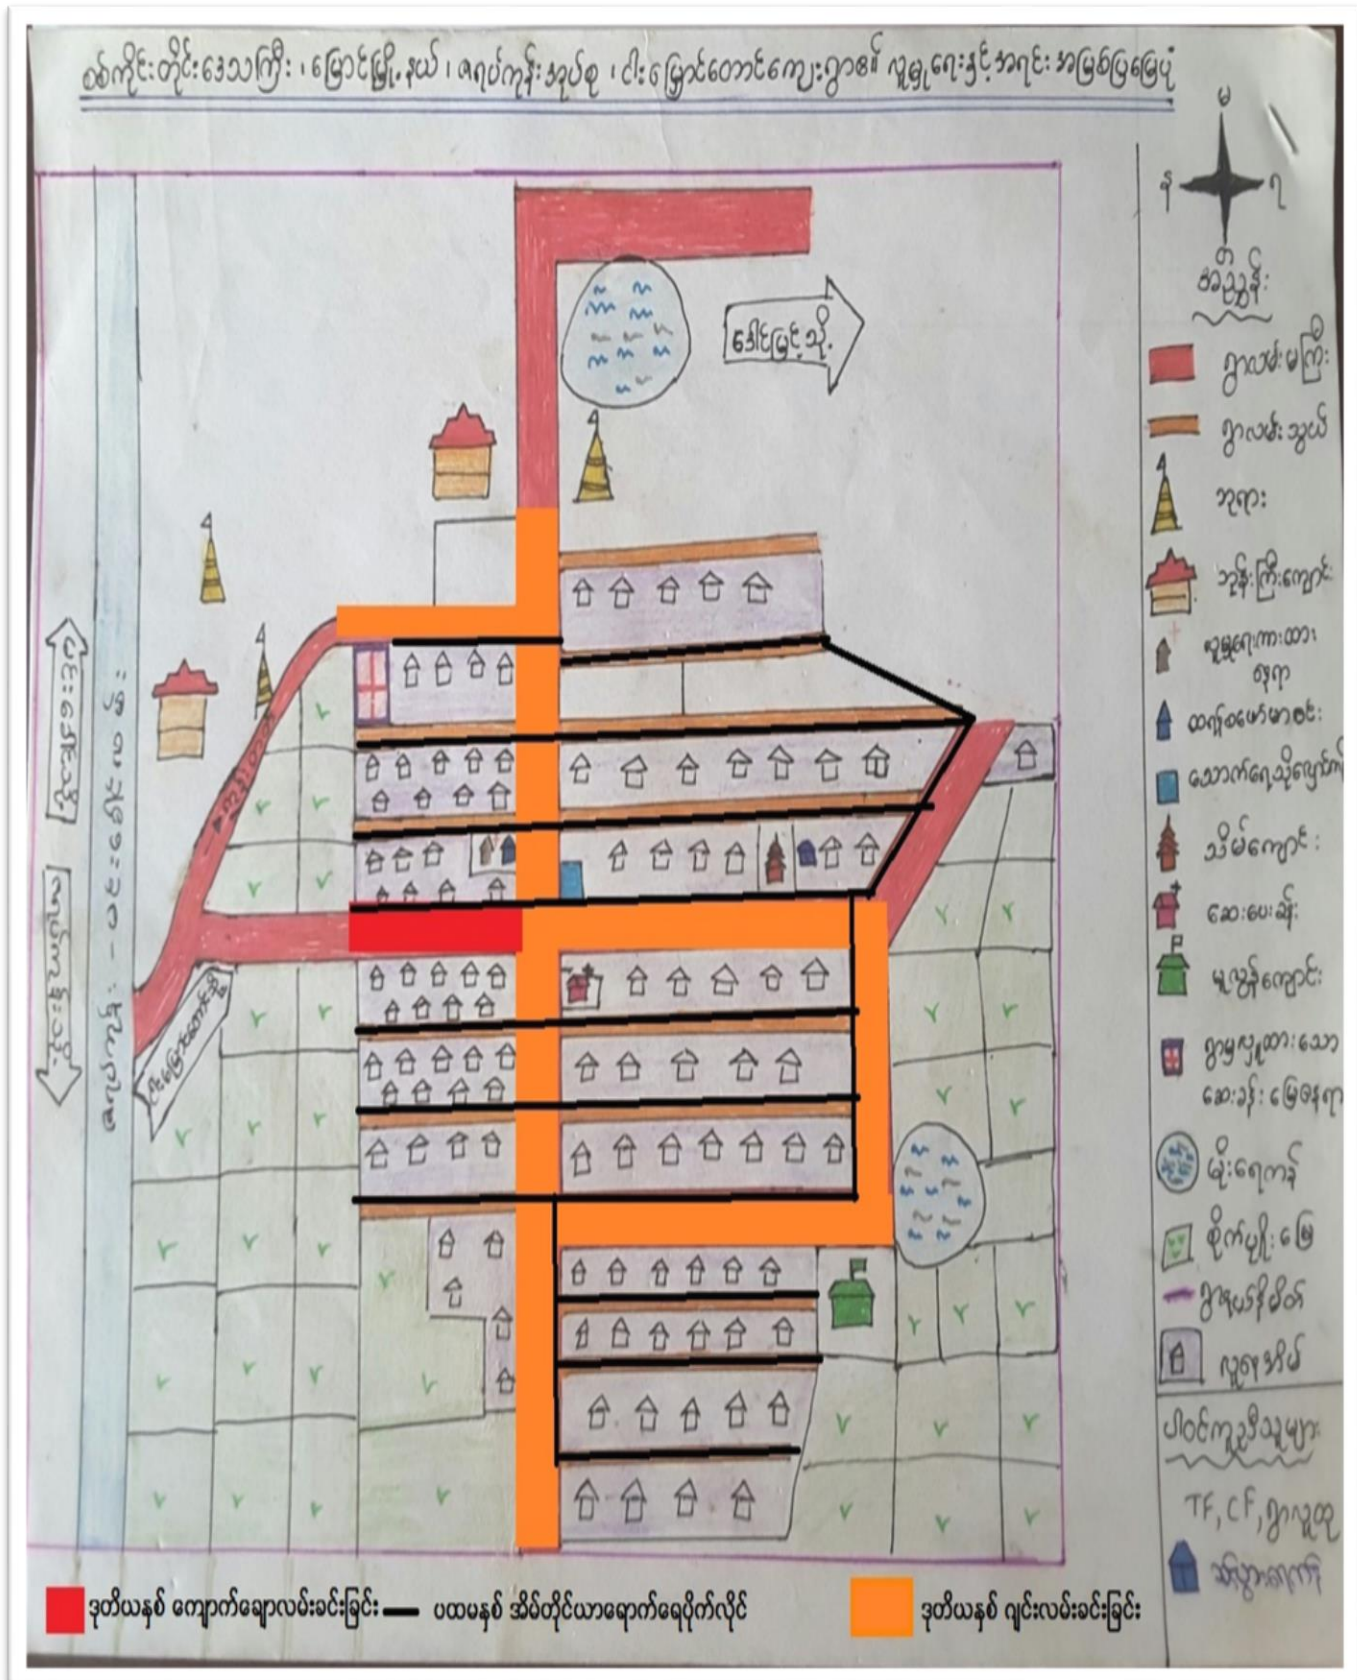 စစ်ကိုင်းတိုင်းဒေသကြီး ၊ မြောင်မြို့နယ် ၊ ဇရပ်ကုန်းအုပ်စု ၊ ငါးမြှောင်တောင်ကျေးရွာ၏ လူမှုရေးနှင့်အရင်းအမြစ်ပြမြေပုံ
မ
န
ရ
တ
အညွှန်း
ရွာလမ်းမကြီး
ရွာလမ်းသွယ်
ဘုရား
ဘုန်းကြီးကျောင်း
လူမှုရေးကားထား
နေရာ
ထရန်စဖော်မာစင်း
သိမ်ကျောင်း
ဆေးပေးခန်း
မူလွန်ကျောင်း
ရွာမှလှူထားသော
ဆေးခန်းမြေနေရာ
မိုးရေကန်
စိုက်ပျိုးမြေ
ရွာနယ်နိမိတ်
လူနေအိမ်
ပါဝင်ကူညီသူများ
TF, CF, ရွာလူထု
ဇရပ်ကုန်းသို့
ဒုတိယနှစ် ကျောက်ချောလမ်းခင်းခြင်း
ပထမနှစ် အိမ်တိုင်ယာရောက်ရေပိုက်လိုင်
ဒုတိယနှစ် ဂျင်းလမ်းခင်းခြင်း